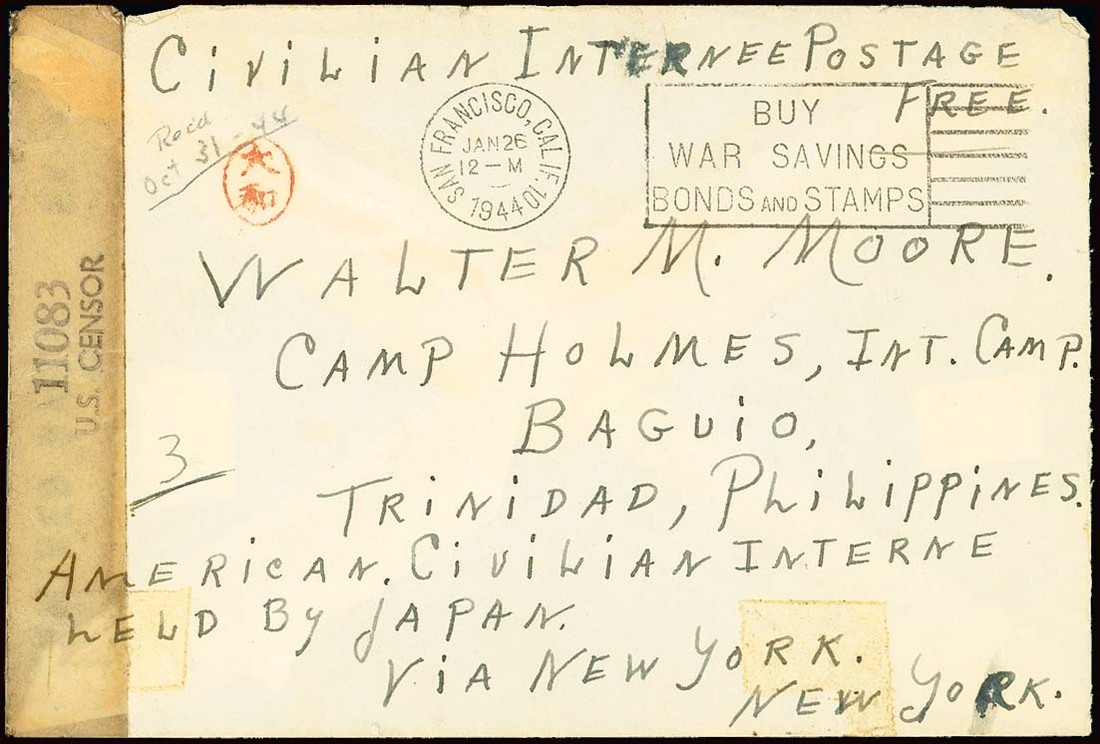 CIVILIAN INTERNEE POSTAGE
FREE.
Rec'd
Oct 31-44
大
SAN FRANCISCO, CALIF. 10
JAN 26
12-M
1944
BUY
WAR SAVINGS
BONDS AND STAMPS
11083
U.S. CENSOR
WALTER M. MOORE.
CAMP HOLMES, INT. CAMP.
BAGUIO,
3
TRINIDAD, PHILIPPINES.
AMERICAN. CIVILIAN INTERNE
HELD By JAPAN.
VIA NEW YORK.
NEW YORK.